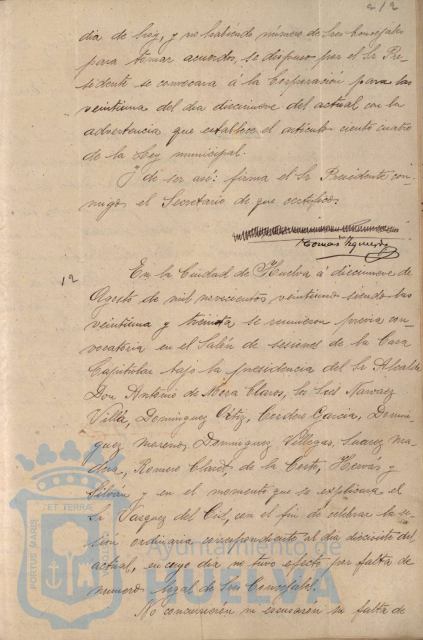 212
día de hoy, y no habiendo número de Sres Concejales
para tomar acuerdos, se dispuso por el Sr Pre-
sidente se convocara á la Corporación para las
veintiuna del dia diecinueve del actual con la
advertencia que establece el artículo ciento cuatro
de la Ley municipal.
Y de ser así: firma el Sr Presidente con-
migo el Secretario de que certifico.
Tomás Izquierdo
12
En la Ciudad de Huelva á diecinueve de
Agosto de mil novecientos veintiuno siendo las
veintiuna y treinta se reunieron previa con-
vocatoria en el Salón de sesiones de la Casa
Capitular bajo la presidencia del Sr Alcalde
Don Antonio de Mora Claros, los Sres Narvaez
Villa, Dominguez Ortiz, Cordero Garcia, Domin-
guez Moreno, Dominguez Villegas, Suarez Ma-
, Romero Claret, de la Corte, Hervás y
Silván y en el momento que se explicará el
Sr Vazquez del Cid, con el fin de celebrar la se-
sion ordinaria correspondiente al dia dieciseis del
actual, en cuyo dia no tuvo efecto por falta de
numero legal de Sres Concejales.
No concurrieron ni escusaron su falta de
PORTUS MARIS ET TERRAE CUSTODIA
Ayuntamiento de
HUELVA